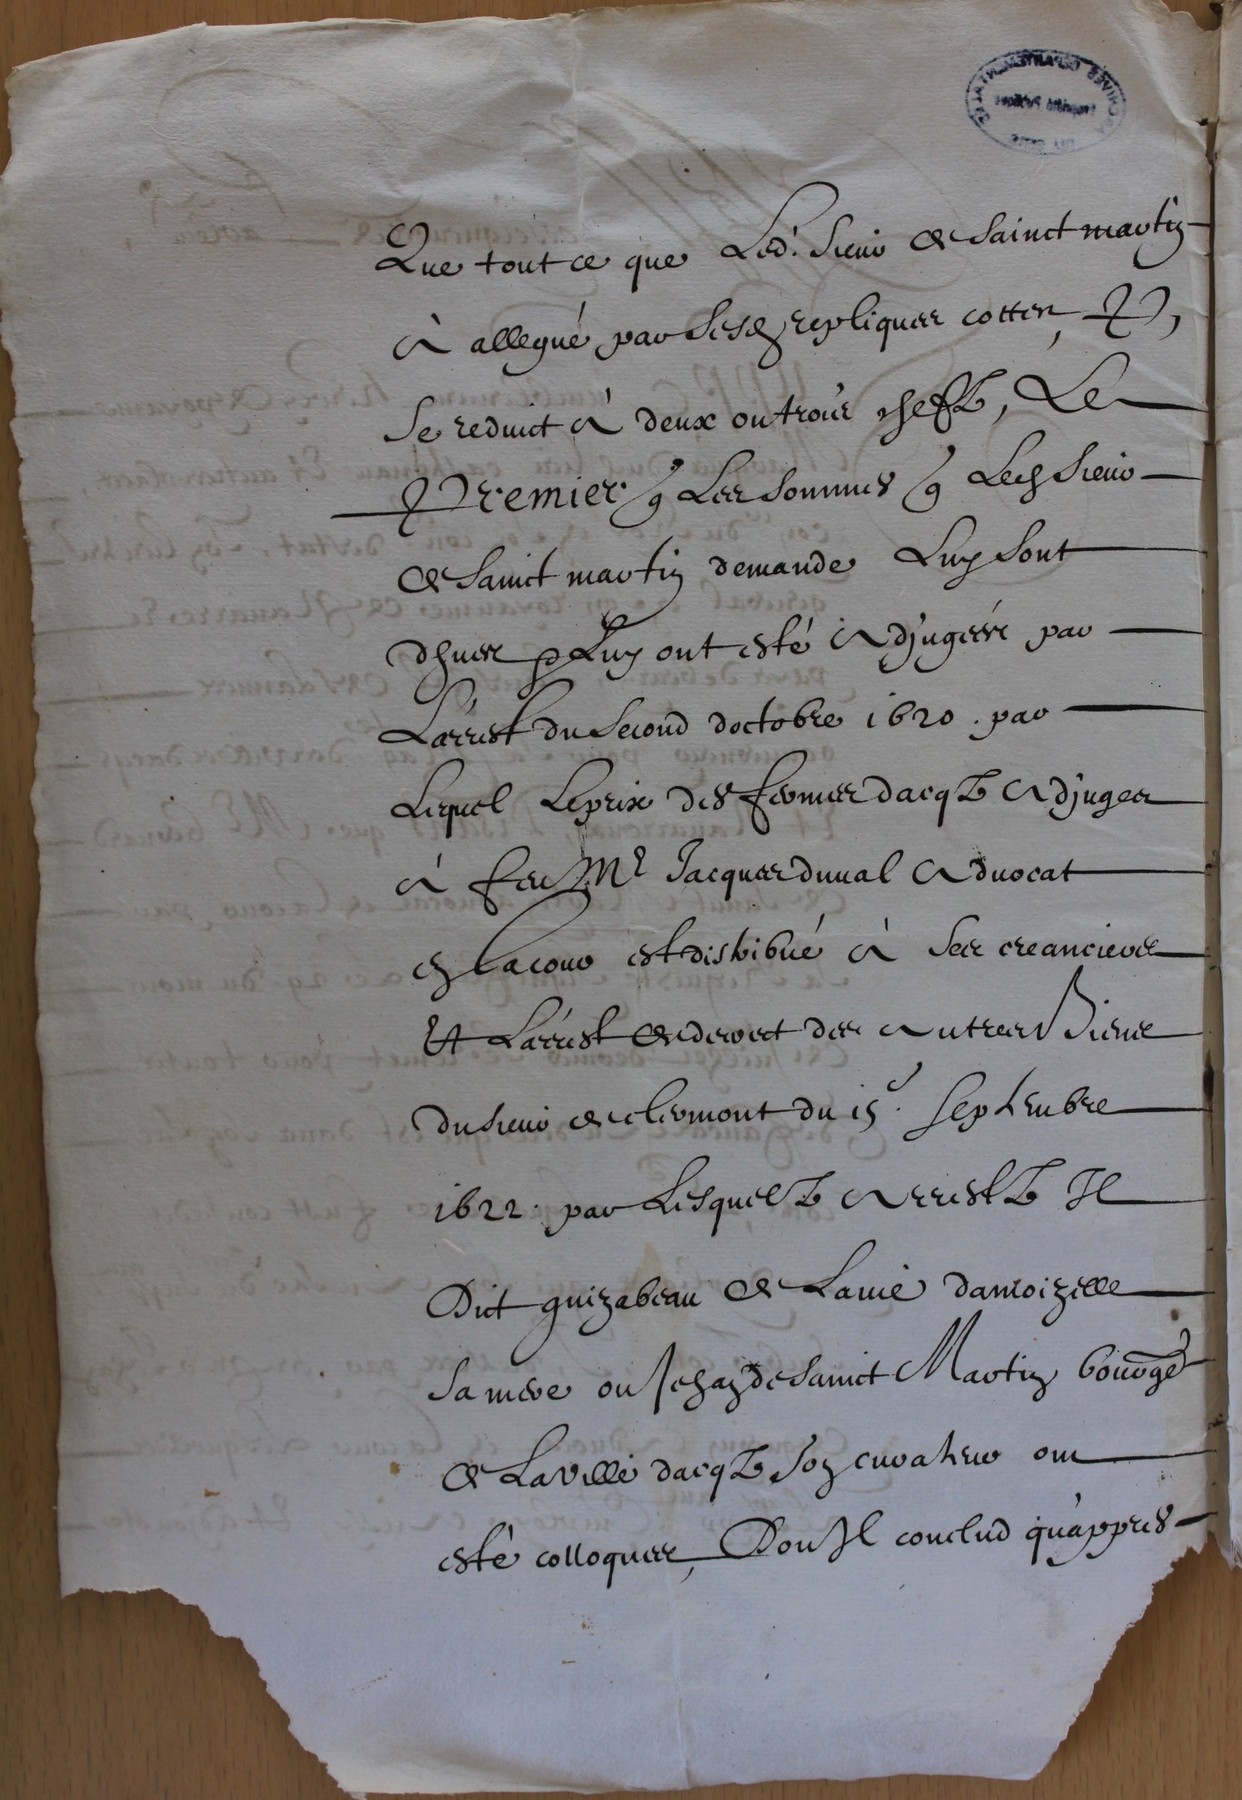 Que tout ce que Led. sieur de sainct martin
a allegué par sesd. repliques cottes P,
se reduict a deux ou trois chefz, Le
Premier q Les sommes q Led sieur
de sainct martin demande Luy sont
dhues p Luy ont esté adjugées par
Larrest du second doctobre 1620. par
Lequel Le prix des fermes dacqz adjuges
a feu Mr Jacques duual aduocat
en La cour est distribué a ses creanciers
Et Larrest de des autres Biens
du sieur de clermont du 15e. septembre
1622. par Lesquelz arrestz Il
Dict quizabeau de Lauie damoizelle
sa mere ou Jehan de sainct Martin bourge
de La ville dacqz son curateur ont
esté colloques, Dou Il conclud quappres